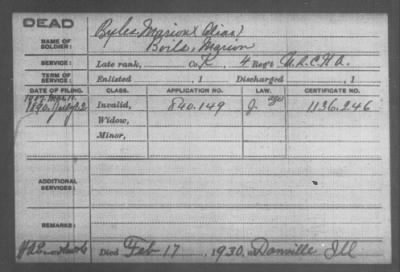 DEAD
NAME OF SOLDIER: Byles, Marion (Alias)
Boils, Marion
SERVICE: Late rank, Co. K, 4 Regt. U.S.C.H.A.
TERM OF SERVICE: Enlisted , 1 Discharged , 1
DATE OF FILING. CLASS. APPLICATION NO. LAW. CERTIFICATE NO.
1907. Mar. 11.
1890. July 22 Invalid, 840.149 J. age 1136.246
Widow,
Minor,
ADDITIONAL SERVICES:
REMARKS:
Died Feb 17 , 1930, at Danville Ill